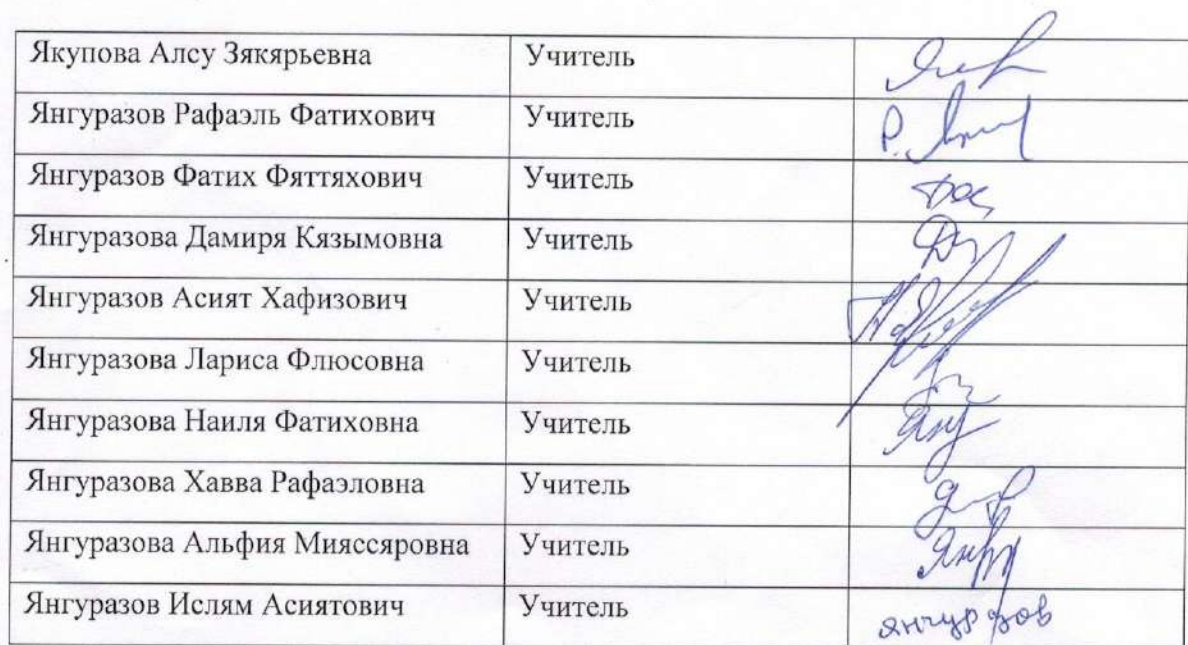 Якупова Алсу Зякярьевна Учитель
Янгуразов Рафаэль Фатихович Учитель
Янгуразов Фатих Фяттяхович Учитель
Янгуразова Дамиря Кязымовна Учитель
Янгуразов Асият Хафизович Учитель
Янгуразова Лариса Флюсовна Учитель
Янгуразова Наиля Фатиховна Учитель
Янгуразова Хавва Рафаэловна Учитель
Янгуразова Альфия Мияссяровна Учитель
Янгуразов Ислям Асиятович Учитель